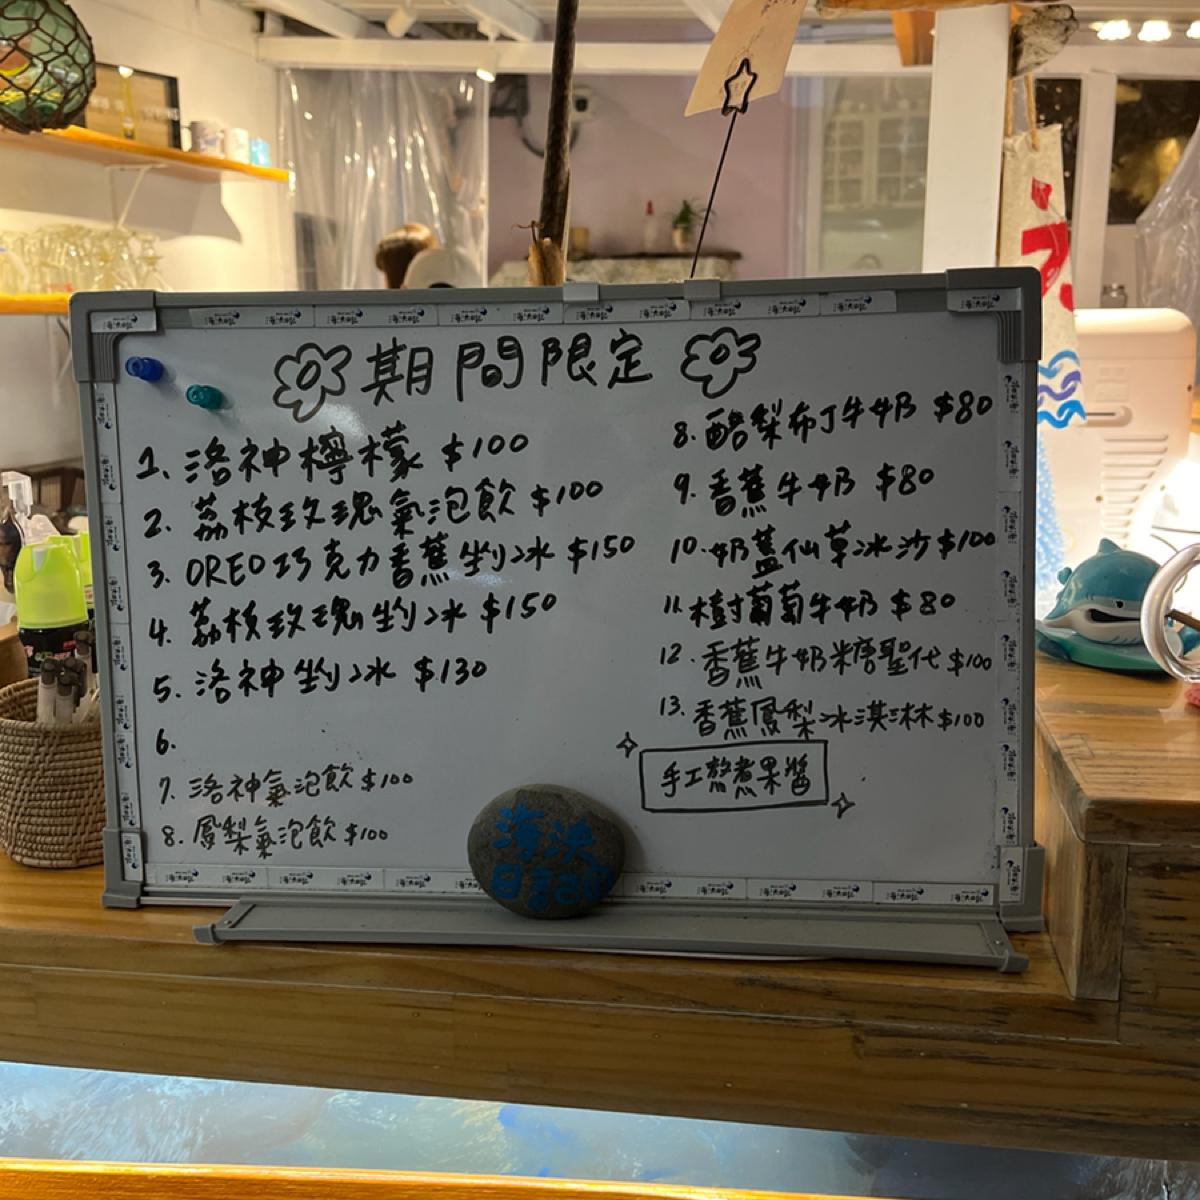 期間限定
1. 洛神檸檬 $100
2. 荔枝玫瑰氣泡飲 $100
3. OREO巧克力香蕉剉冰 $150
4. 荔枝玫瑰剉冰 $150
5. 洛神剉冰 $130
6.
7. 洛神氣泡飲 $100
8. 鳳梨氣泡飲 $100
8. 酪梨布丁牛奶 $80
9. 香蕉牛奶 $80
10. 奶蓋仙草冰沙 $100
11. 樹葡萄牛奶 $80
12. 香蕉牛奶糖聖代 $100
13. 香蕉鳳梨冰淇淋 $100
手工熬煮果醬
海泱
日記